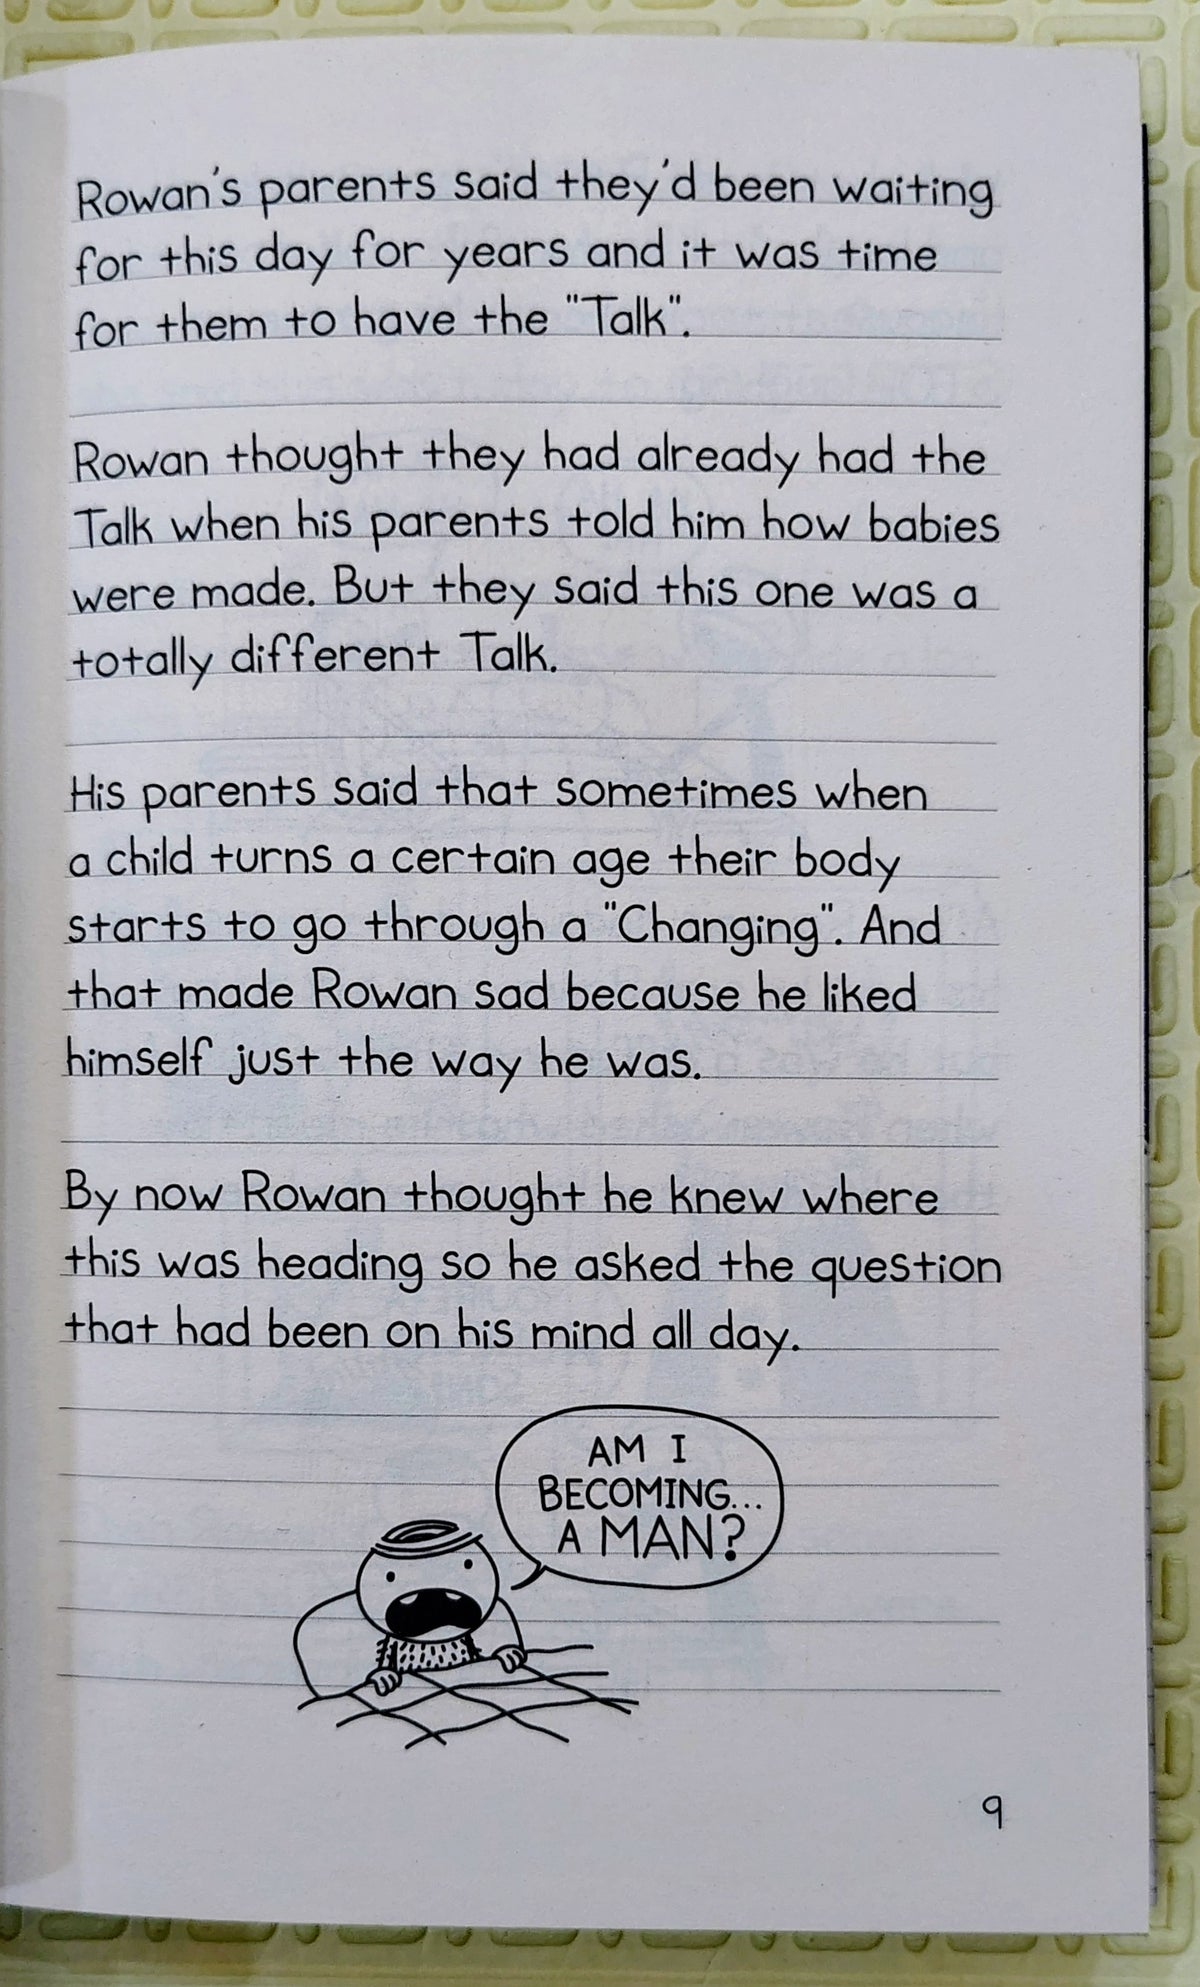 Rowan's parents said they'd been waiting
for this day for years and it was time
for them to have the "Talk".
Rowan thought they had already had the
Talk when his parents told him how babies
were made. But they said this one was a
totally different Talk.
His parents said that sometimes when
a child turns a certain age their body
starts to go through a "Changing". And
that made Rowan sad because he liked
himself just the way he was.
By now Rowan thought he knew where
this was heading so he asked the question
that had been on his mind all day.
AM I
BECOMING...
A MAN?
9